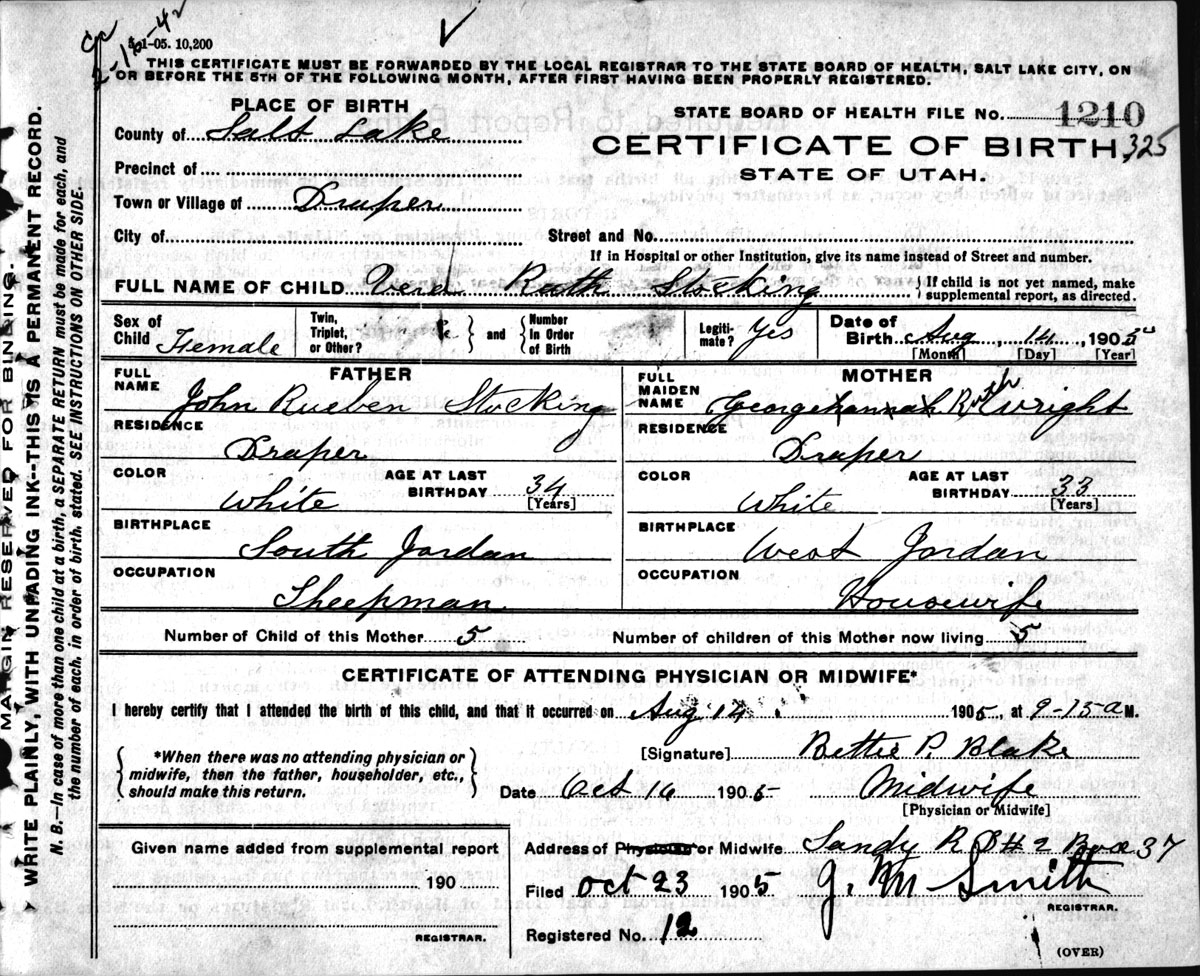 cc
2-16-42
5-1-05. 10,200
THIS CERTIFICATE MUST BE FORWARDED BY THE LOCAL REGISTRAR TO THE STATE BOARD OF HEALTH, SALT LAKE CITY, ON
OR BEFORE THE 5TH OF THE FOLLOWING MONTH, AFTER FIRST HAVING BEEN PROPERLY REGISTERED.
PLACE OF BIRTH
STATE BOARD OF HEALTH FILE No. 1210
County of Salt Lake
CERTIFICATE OF BIRTH 325
Precinct of
STATE OF UTAH.
Town or Village of Draper
City of Street and No.
If in Hospital or other Institution, give its name instead of Street and number.
FULL NAME OF CHILD Vera Ruth Stocking { If child is not yet named, make supplemental report, as directed.
Sex of Child Female Twin, Triplet, or Other? } and { Number In Order of Birth Legitimate? Yes Date of Birth Aug 14, 1905
[Month] [Day] [Year]
FATHER MOTHER
FULL NAME John Rueben Stocking FULL MAIDEN NAME George hannah Ruth Wright
RESIDENCE Draper RESIDENCE Draper
COLOR White AGE AT LAST BIRTHDAY 34 [Years] COLOR White AGE AT LAST BIRTHDAY 33 [Years]
BIRTHPLACE South Jordan BIRTHPLACE West Jordan
OCCUPATION Sheepman OCCUPATION Housewife
Number of Child of this Mother 5 Number of children of this Mother now living 5
CERTIFICATE OF ATTENDING PHYSICIAN OR MIDWIFE*
I hereby certify that I attended the birth of this child, and that it occurred on Aug 14 1905, at 9-15 a M.
{ *When there was no attending physician or midwife, then the father, householder, etc., should make this return. }
[Signature] Bettie P. Blake
Date Oct 16 1905 Midwife
[Physician or Midwife]
Given name added from supplemental report
190
REGISTRAR.
Address of Physician or Midwife Sandy R D # 2 Box 37
Filed Oct 23 1905 J. M Smith
REGISTRAR.
Registered No. 12
(OVER)
MARGIN RESERVED FOR BINDING.
WRITE PLAINLY, WITH UNFADING INK--THIS IS A PERMANENT RECORD.
N. B.—In case of more than one child at a birth, a SEPARATE RETURN must be made for each, and
the number of each, in order of birth, stated. SEE INSTRUCTIONS ON OTHER SIDE.